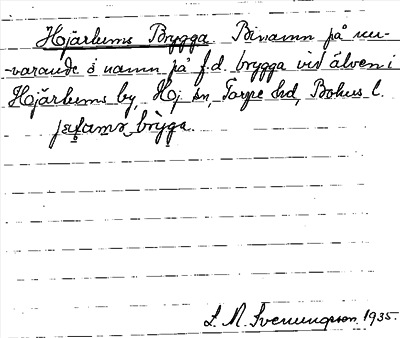 Hjärtums Brygga. Binamn på nu-
-varande o namn på f.d. brygga vid älven i
Hjärtums by, Hj sn, Torpe hd, Bohus l.
brỳga.
S. M. Svenungsson 1935.